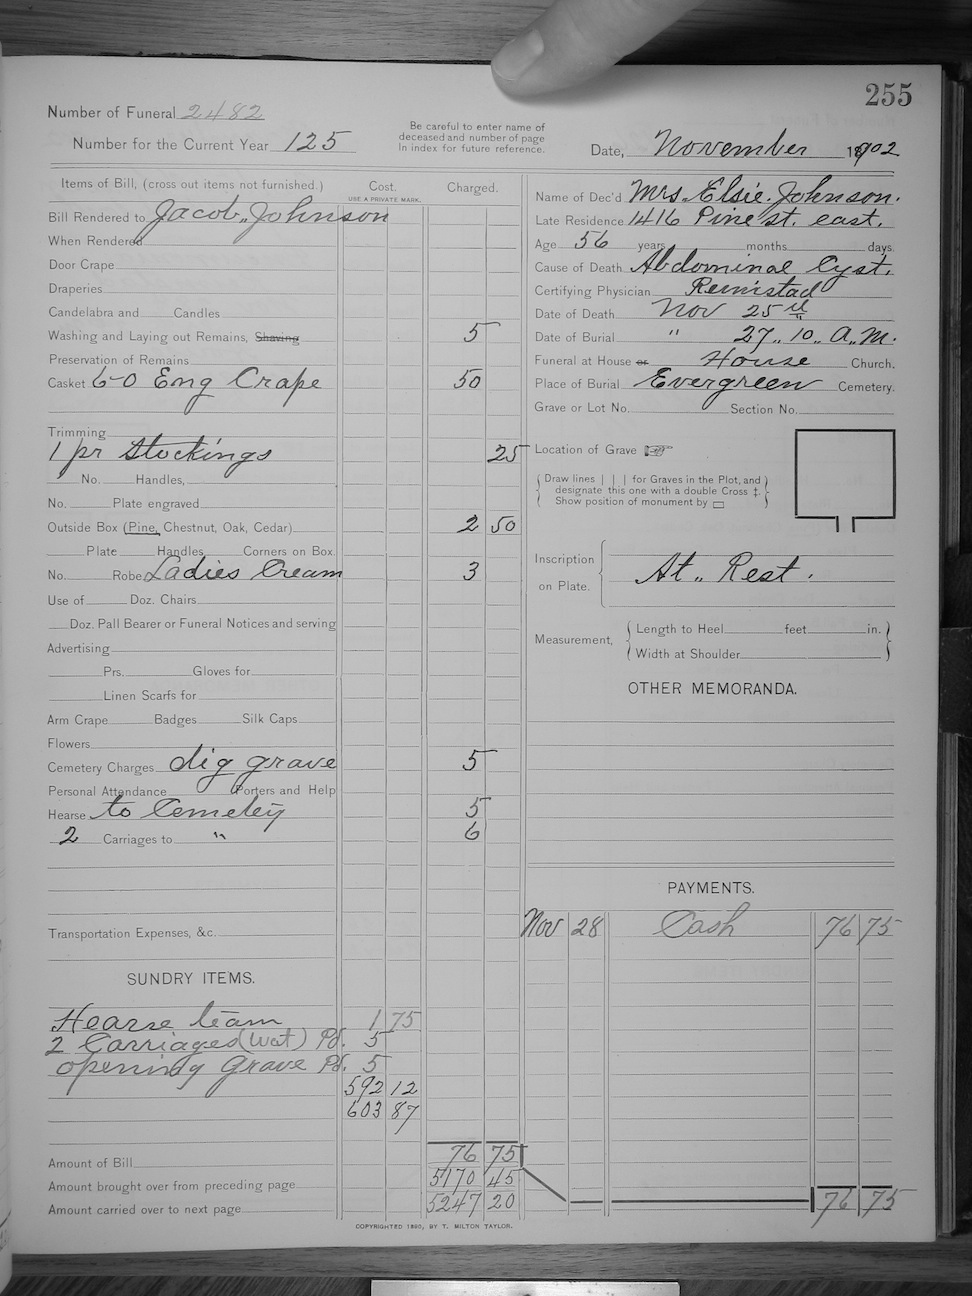 255
Number of Funeral 2482
Number for the Current Year 125
Be careful to enter name of
deceased and number of page
In index for future reference.
Date, November 1902
Items of Bill, (cross out items not furnished.) Cost. Charged.
USE A PRIVATE MARK.
Bill Rendered to Jacob Johnson
When Rendered
Door Crape
Draperies
Candelabra and Candles
Washing and Laying out Remains, Shaving 5
Preservation of Remains
Casket 6-0 Eng Crape 50
Trimming
1 pr Stockings 25
No. Handles,
No. Plate engraved
Outside Box (Pine, Chestnut, Oak, Cedar) 2 50
Plate Handles Corners on Box.
No. Robe Ladies Cream 3
Use of Doz. Chairs
Doz. Pall Bearer or Funeral Notices and serving
Advertising
Prs. Gloves for
Linen Scarfs for
Arm Crape Badges Silk Caps
Flowers
Cemetery Charges dig grave 5
Personal Attendance Porters and Help
Hearse to Cemetey 5
2 Carriages to " 6
Transportation Expenses, &c.
SUNDRY ITEMS.
Hearse team 1 75
2 Carriages (Wat) Pd. 5
opening Grave Pd. 5
592 12
603 87
Amount of Bill 76 75
Amount brought over from preceding page 5170 45
Amount carried over to next page 5247 20
Name of Dec'd Mrs. Elsie Johnson.
Late Residence 1416 Pine st. east.
Age 56 years months days.
Cause of Death Abdominal Cyst.
Certifying Physician
Date of Death Nov 25
Date of Burial " 27,, 10,, A,, M.
Funeral at House or House Church.
Place of Burial Evergreen Cemetery.
Grave or Lot No. Section No.
Location of Grave
Draw lines | | | for Graves in the Plot, and
designate this one with a double Cross ‡.
Show position of monument by
Inscription
on Plate.
At,, Rest.
Measurement,
Length to Heel feet in.
Width at Shoulder
OTHER MEMORANDA.
PAYMENTS.
Nov 28 Cash 76 75
76 75
COPYRIGHTED 1890, BY T. MILTON TAYLOR.